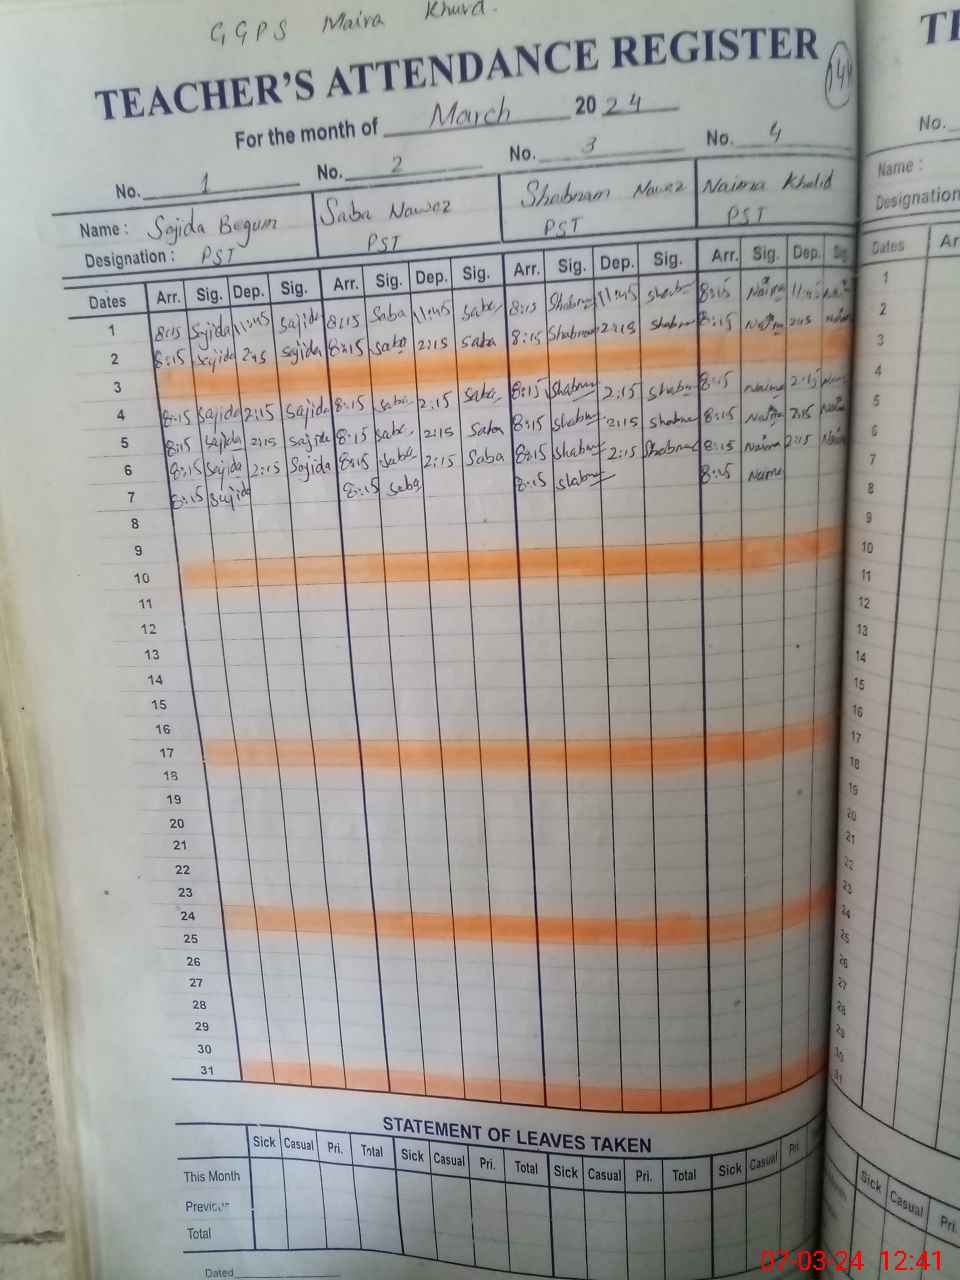 GGPS Maira Khurd.
TEACHER'S ATTENDANCE REGISTER
144
For the month of March 2024
No. 1 No. 2 No. 3 No. 4
Name : Sajida Begum Saba Nawaz Shabnam Nawaz Naima Khalid
Designation : PST PST PST PST
Dates Arr. Sig. Dep. Sig. Arr. Sig. Dep. Sig. Arr. Sig. Dep. Sig. Arr. Sig. Dep. Sig.
1 8:15 Sajida 11:45 Sajida 8:15 Saba 11:45 Saba 8:15 Shabnam 11:45 Shabnam 8:15 Naima 11:45 Naima
2 8:15 Sajida 2:15 Sajida 8:15 Saba 2:15 Saba 8:15 Shabnam 2:15 Shabnam 8:15 Naima 2:15 Naima
3
4 8:15 Sajida 2:15 Sajida 8:15 Saba 2:15 Saba 8:15 Shabnam 2:15 Shabnam 8:15 Naima 2:15 Naima
5 8:15 Sajida 2:15 Sajida 8:15 Saba 2:15 Saba 8:15 Shabnam 2:15 Shabnam 8:15 Naima 2:15 Naima
6 8:15 Sajida 2:15 Sajida 8:15 Saba 2:15 Saba 8:15 Shabnam 2:15 Shabnam 8:15 Naima 2:15 Naima
7 8:15 Sajida 8:15 Saba 8:15 Shabnam 8:15 Naima
8
9
10
11
12
13
14
15
16
17
18
19
20
21
22
23
24
25
26
27
28
29
30
31
STATEMENT OF LEAVES TAKEN
Sick Casual Pri. Total Sick Casual Pri. Total Sick Casual Pri. Total Sick Casual Pri.
This Month
Previous
Total
Dated
No.
Name :
Designation
Dates Ar
1
2
3
4
5
6
7
8
9
10
11
12
13
14
15
16
17
18
19
20
21
22
23
24
25
26
27
28
29
30
31
Sick Casual Pri.
07-03-24 12:41